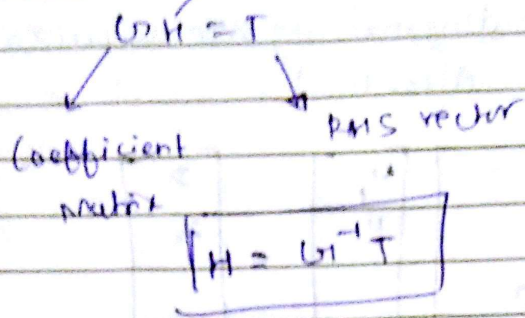 GH = T
Coefficient
Matrix
RHS vector
H = G⁻¹ T